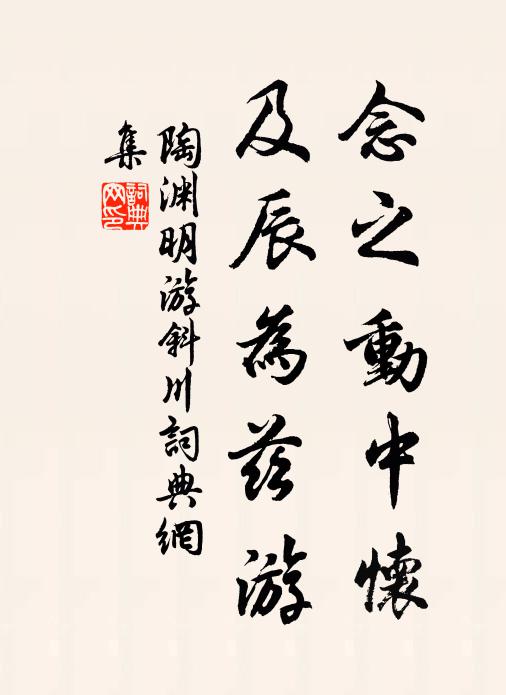 念之動中懷
及辰為茲游
陶渊明游斜川詞典網
集
詞典
网印